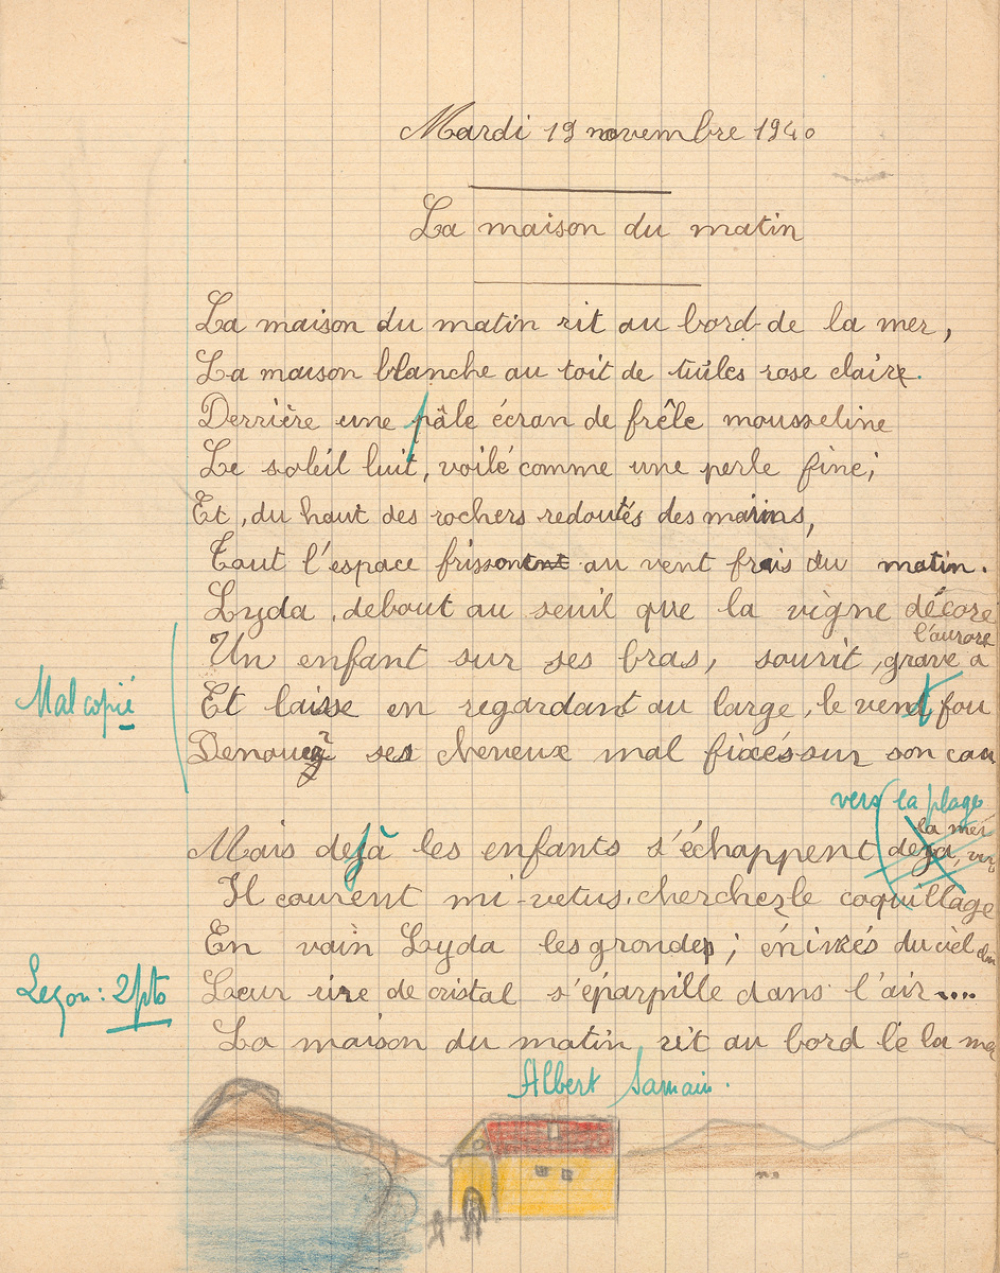 Mardi 19 novembre 1940
La maison du matin
La maison du matin rit au bord de la mer,
La maison blanche au toit de tuiles rose claire.
Derrière une pâle écran de frêle mousseline
Le soleil luit, voilé comme une perle fine;
Et, du haut des rochers redoutés des marins,
Tout l'espace frissonent au vent frais du matin.
Lyda, debout au seuil que la vigne décore
l'aurore
Un enfant sur ses bras, sourit, grave a
Mal copié
Et laisse en regardant au large, le vent fou
Denouer ses cheveux mal fixés sur son cou
vers la plage
la mer
Mais dejà les enfants s'échappent deja, vers
Il courent mi-vetus, chercher le coquillage
En vain Lyda les gronde; énivrés du ciel
Leçon: 2pts
Leur rire de cristal s'éparpille dans l'air....
La maison du matin rit au bord de la mer
Albert Samain.